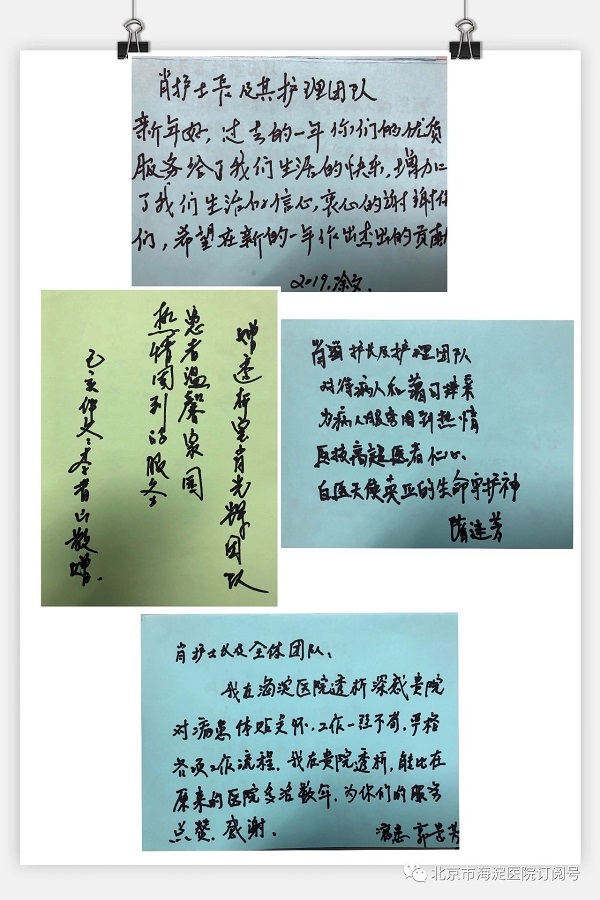 肖护士长及其护理团队
新年好,过去的一年你们的优质
服务给了我们生活的快乐,增加
了我们生活的信心,衷心的谢谢你
们,希望在新的一年作出杰出的贡献
2019.徐文.
赠透析室肖光辉团队
患者温馨家园
热情周到的服务
李者山敬赠.
肖 护长及护理团队
对待病人和蔼可亲
为病人服务周到热情
医技高超医者仁心.
白医天使 的生命守护神
隋建芳
肖护士长及全体团队、
我在海淀医院透析深感贵院
对病患体贴关怀.工作一丝不苟.严格
各项工作流程.我在贵院透析,能比在
原来的医院多活数年.为你们的服务
点赞.感谢.
病患 郭 芳
北京市海淀医院订阅号